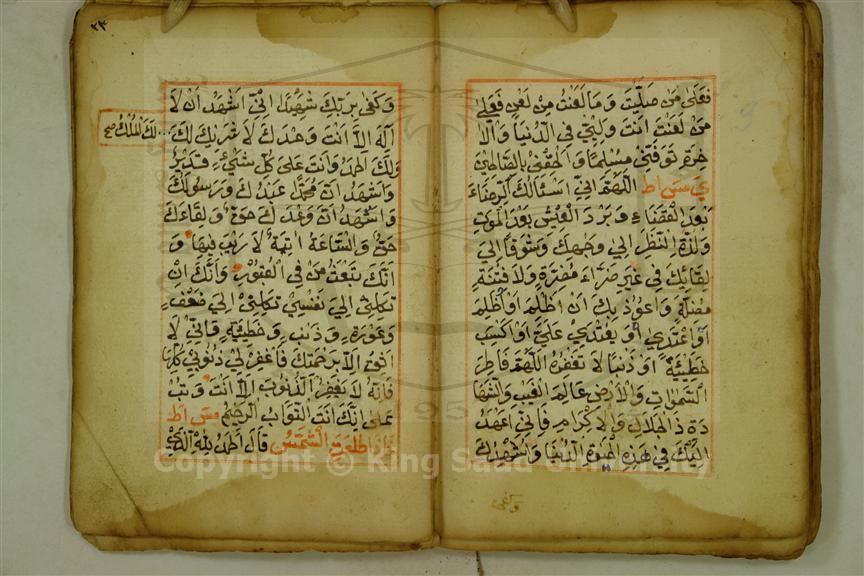 فعلى من صليت وما لعنت من لعن فعلى
من لعنت انت وليي في الدنيا والا
خرة توفني مسلما والحقني بالصالحين
ي مس اط اللهم اني اسئالك الرضاء
بعد القضاء وبرد العيش بعد الموت
ولذة النظر الى وجهك وشوقا الى
لقائك في غير ضراء مضرة ولا فتنة
مضلة واعوذ بك ان اظلم او اظلم
او اعتدي او يعتدي علي او اكسب
خطيئة او ذنبا لا تغفره اللهم فاطر
السموات والارض عالم الغيب والشها
دة ذا الجلال والاكرام فاني اعهد
اليك في هذه الحيوة الدنيا واشهدك
وكفى
٢٣
وكفى بك شهيدا اني اشهد ان لا
اله الا انت وحدك لا شريك لك
لك الملك صح
ولك الحمد وانت على كل شيء قدير
واشهد ان محمدا عبدك ورسولك
واشهد ان وعدك حق ولقاءك
حق والساعة اتية لا ريب فيها و
انك تبعث من في القبور وانك ان
تكلني الى نفسي تكلني الى ضعف
وعورة وذنب وخطيئة فاني لا
اثق الا برحمتك فاغفر لي ذنوبي كلها
فانه لا يغفر الذنوب الا انت وتب
علي انك انت التواب الرحيم مس اط
فاذا طلعت الشمس قال الحمد لله الذي
Copyright © King Saud University